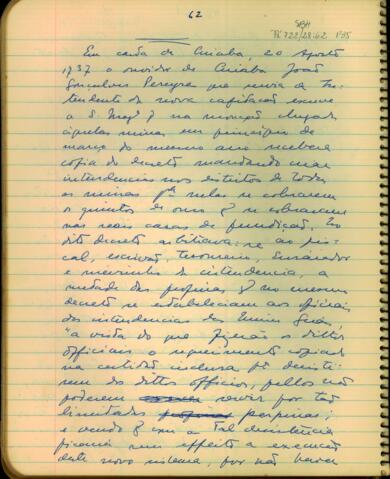 62
SBH
Pi 722/28:62 P35
Em carta de Cuiabá, 20 Agosto
1737 o ouvidor de Cuiabá João
Gonçalves Pereyra que servia de In-
tendente da nova capitação escreve
a S. Magde q na monção chegada
áquelas minas em principio de
março do mesmo ano recebera
copia do decreto mandando criar
intendencias nos distritos de todas
as minas pa nelas se cobrarem
os quintos do ouro q se cobravam
nas reaes casas de fundição. No
dito decreto arbitrava-se ao fis-
cal, escrivão, tesoureiro,
e meirinho da intendencia, a
metade das propinas q no mesmo
decreto se estabeleciam aos oficiais
das intendencias das Minas Gerais,
"a vista do que fizerão os dittos
officiaes o requerimento copiado
na certidão inclusa pa desisti-
rem do dittos officios, pellos não
poderem servir por tão
limitadas propinas;
e vendo q com a tal desistencia
ficaria sem effeito a execução
deste novo sistema, por não haver